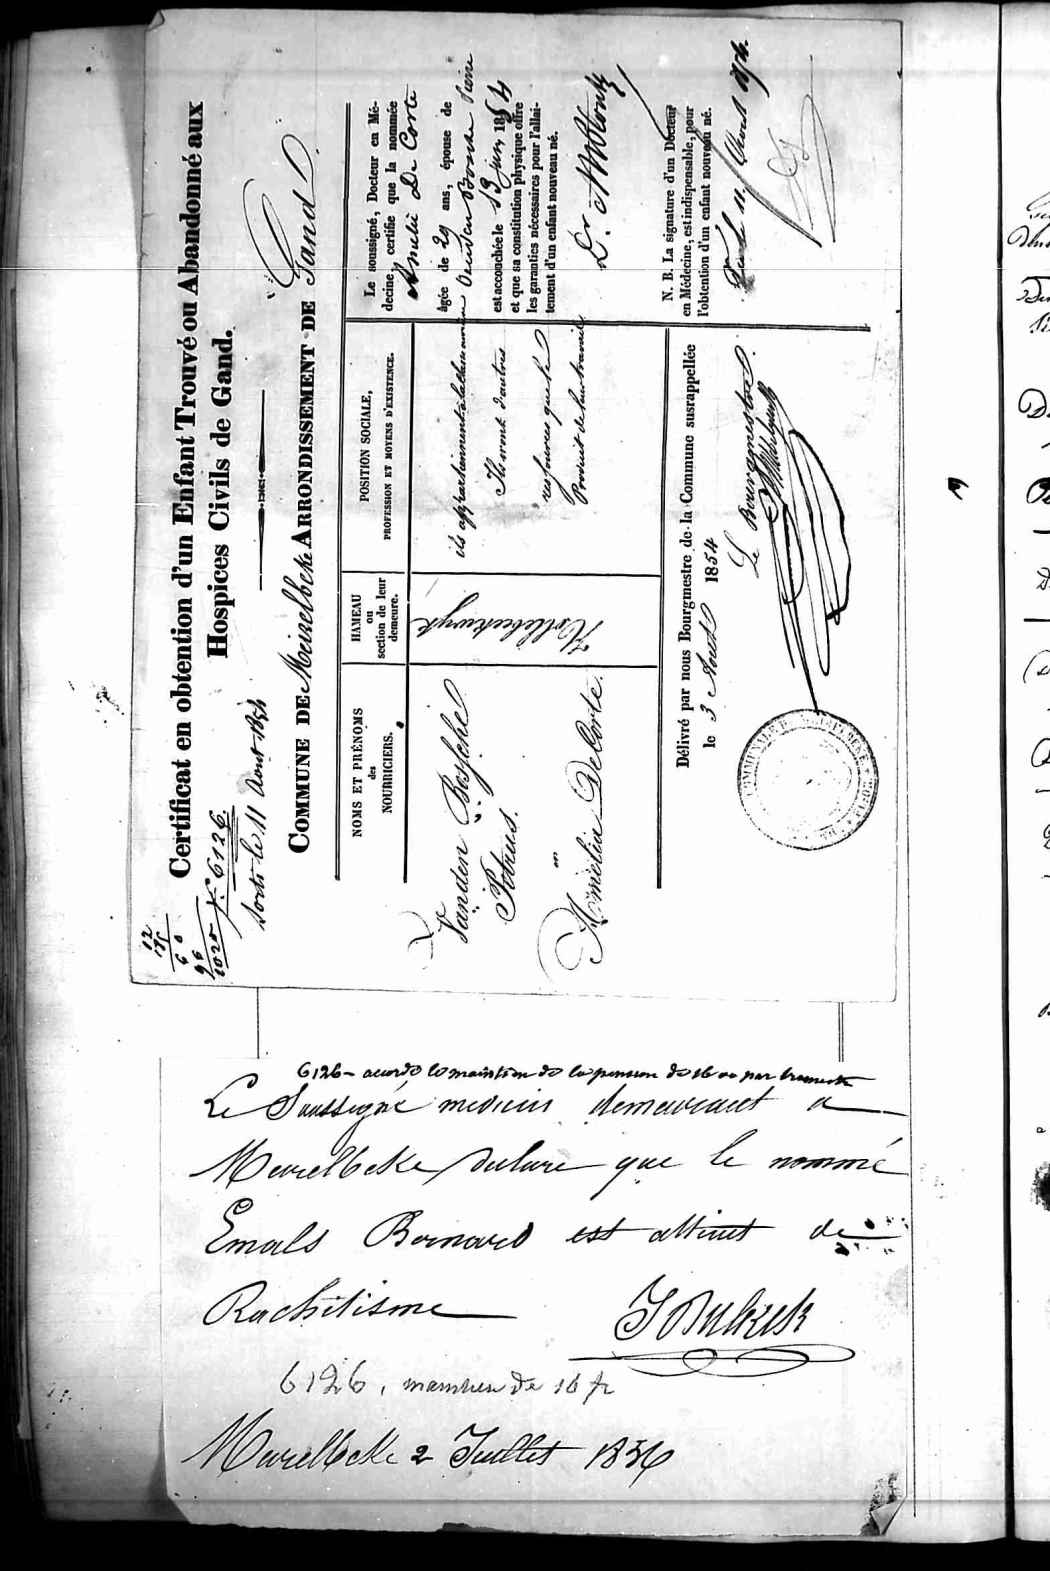 Certificat en obtention d'un Enfant Trouvé ou Abandonné aux
Hospices Civils de Gand.
12
60
96
1020
N° 6126.
Sorti le 11 Aout 1854
COMMUNE DE Meirelbeke ARRONDISSEMENT DE Gand
NOMS ET PRÉNOMS
des
NOURRICIERS.
Vanden Bossche
Petrus.
en
Amelia De Corte.
HAMEAU
ou
section de leur
demeure.
POSITION SOCIALE,
PROFESSION ET MOYENS D'EXISTENCE.
ils appartiennent
Ils n'ont d'autres
resources que le
Produit de leur travail.
Le soussigné, Docteur en Mé-
decine, certifie que la nommée
Amelie De Corte
âgée de 29 ans, épouse de
Vanden Bossche Pierre
est accouchée le 13 juin 1854
et que sa constitution physique offre
les garanties nécessaires pour l'allai-
tement d'un enfant nouveau né.
Dr.
N. B. La signature d'un Docteur
en Médecine, est indispensable, pour
l'obtention d'un enfant nouveau né.
11 Aout 1854
Délivré par nous Bourgmestre de la Commune susrappellée
le 3 Aout 1854
Le Bourgmestre
6126 – accordé le maintien de la pension de 16 par trimestre
Le Soussigné medecin demeurant a
Meirelbeke declare que le nommé
Emals Bernard est atteint de
Rachitisme
6126, maintien de 16 fr
Meirelbeke 2 Juillet 1856